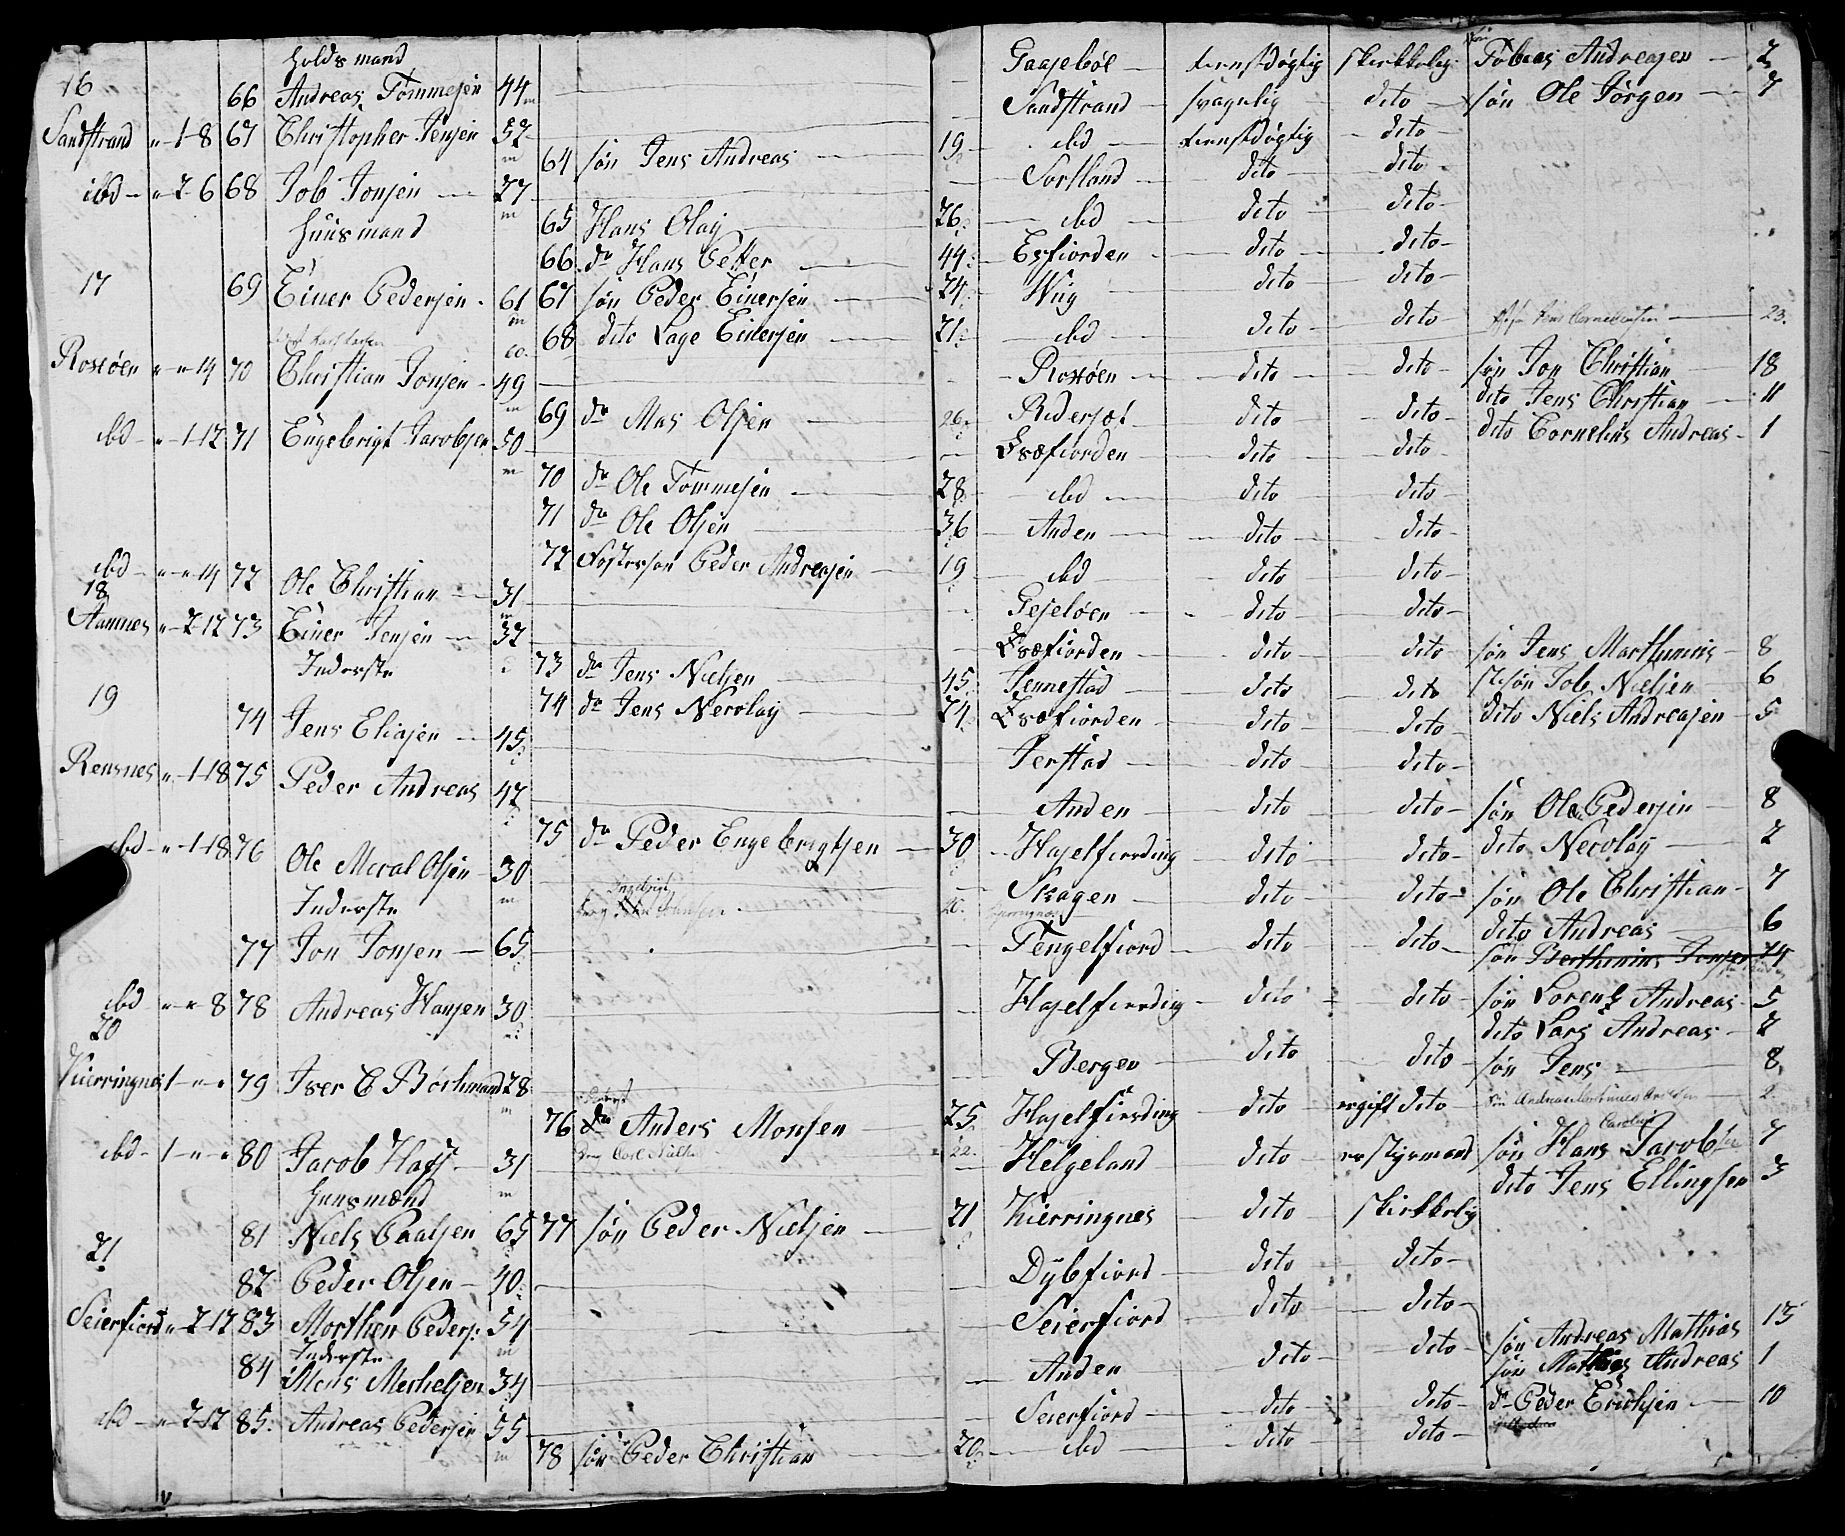 16 Holdsmand
66 Andreas Tommesen 44 — Gaasebøe — tienstdøgtig skikkelig søn Tobias Andreasen — 2
Sandstrand " 1-8 67 Christopher Jensen 52 — Sandstrand — svagelig dito søn Ole Jørgen — 7
64 søn Jens Andreas — 19 — ibd — tienstdøgtig dito
ibd — " 2 6 68 Job Jonsen — 27 — Sortland — dito dito
Huusmand 65 Hans Olay — 26 — ibd — dito dito
66 do Hans Petter — 44 Esfiorden dito dito
17 69 Einer Pedersen 61 67 søn Peder Einersen — 24 Wiig dito dito
68 dito Lage Einersen — 21 — ibd — dito dito 23
Roskøen " " 14 70 Christian Jonsen 49 — Roskøen — dito dito søn Jon Christian 18
dito Jens Christian — 11
ibd — " 1-12 71 Engebrigt Jacobsen 50 69 do Mas Olsen — 26 Ridersæt dito dito dito Cornelius Andreas — 1
Exefiorden — dito dito
70 do Ole Tommesen — 28 — ibd — dito dito
71 do Ole Olsen — 36 Anden — dito dito
72 Fostersøn Peder Andreasen — 19 — ibd dito dito
ibd — " " 14 72 Ole Christian — 31 — Gejsløen — dito dito
18
Aamnes " 2-12 73 Einer Jensen — 32 — Exefiorden — dito dito søn Jens Marthinus — 8
Inderste 73 do Jens Nielsen — 45 Jennestad — dito dito stisøn Job Nielsen 6
19 74 Jens Eliasen — 45 74 do Jens Nicolay — 24 Exefiorden — dito dito dito Niels Andreasen — 5
Jerstad — dito dito
Rensnes " 1-18 75 Peder Andreas 42 — Anden — dito dito søn Ole Pedersen — 8
75 do Peder Engebrigtsen — 30 Haselfierding dito dito dito Nicolay — 2
ibd — " 1-18 76 Ole Meral Olsen 30 — Skagen — dito dito søn Ole Christian — 7
Inderste dito Andreas — 6
77 Jon Jonsen — 65 — Tengelfiord — dito dito søn Berthinius Jonsen 24
ibd " " 8 78 Andreas Hansen 30 — Haselfierding — dito dito søn Lorentz Andreas 5
20 dito Lars Andreas — 2
Kierringnes 1 — " " 79 Iver C Bochmand 28 — Bergen — dito dito søn Jens — 8
76 do Anders Monsen — 25 Haselfierding — dito ergift dito 2
ibd — 1 — " " 80 Jacob Hass — 31 22 Helgeland dito er styrmand søn Hans Carolius Jacobsen 7
Huusmænd dito Jens Ellingsen 3
81 Niels Paalsen 65 77 søn Peder Nielsen — 21 Kierringnes — dito skikkelig
21 82 Peder Olsen — 40 — Dybfiord — dito dito
Seierfiord " 2-12 83 Morthen Peders: 54 — Seierfiord — dito dito søn Andreas Mathias 13
Inderste
84 Mons Mechelsen 34 — Anden dito dito søn Mathias Andreas 1
ibd — " 2-12 85 Andreas Pedersen 55 — Seierfiord — dito dito do Peder Erichsen — 10
78 søn Peder Christian — 20 — ibd — dito dito